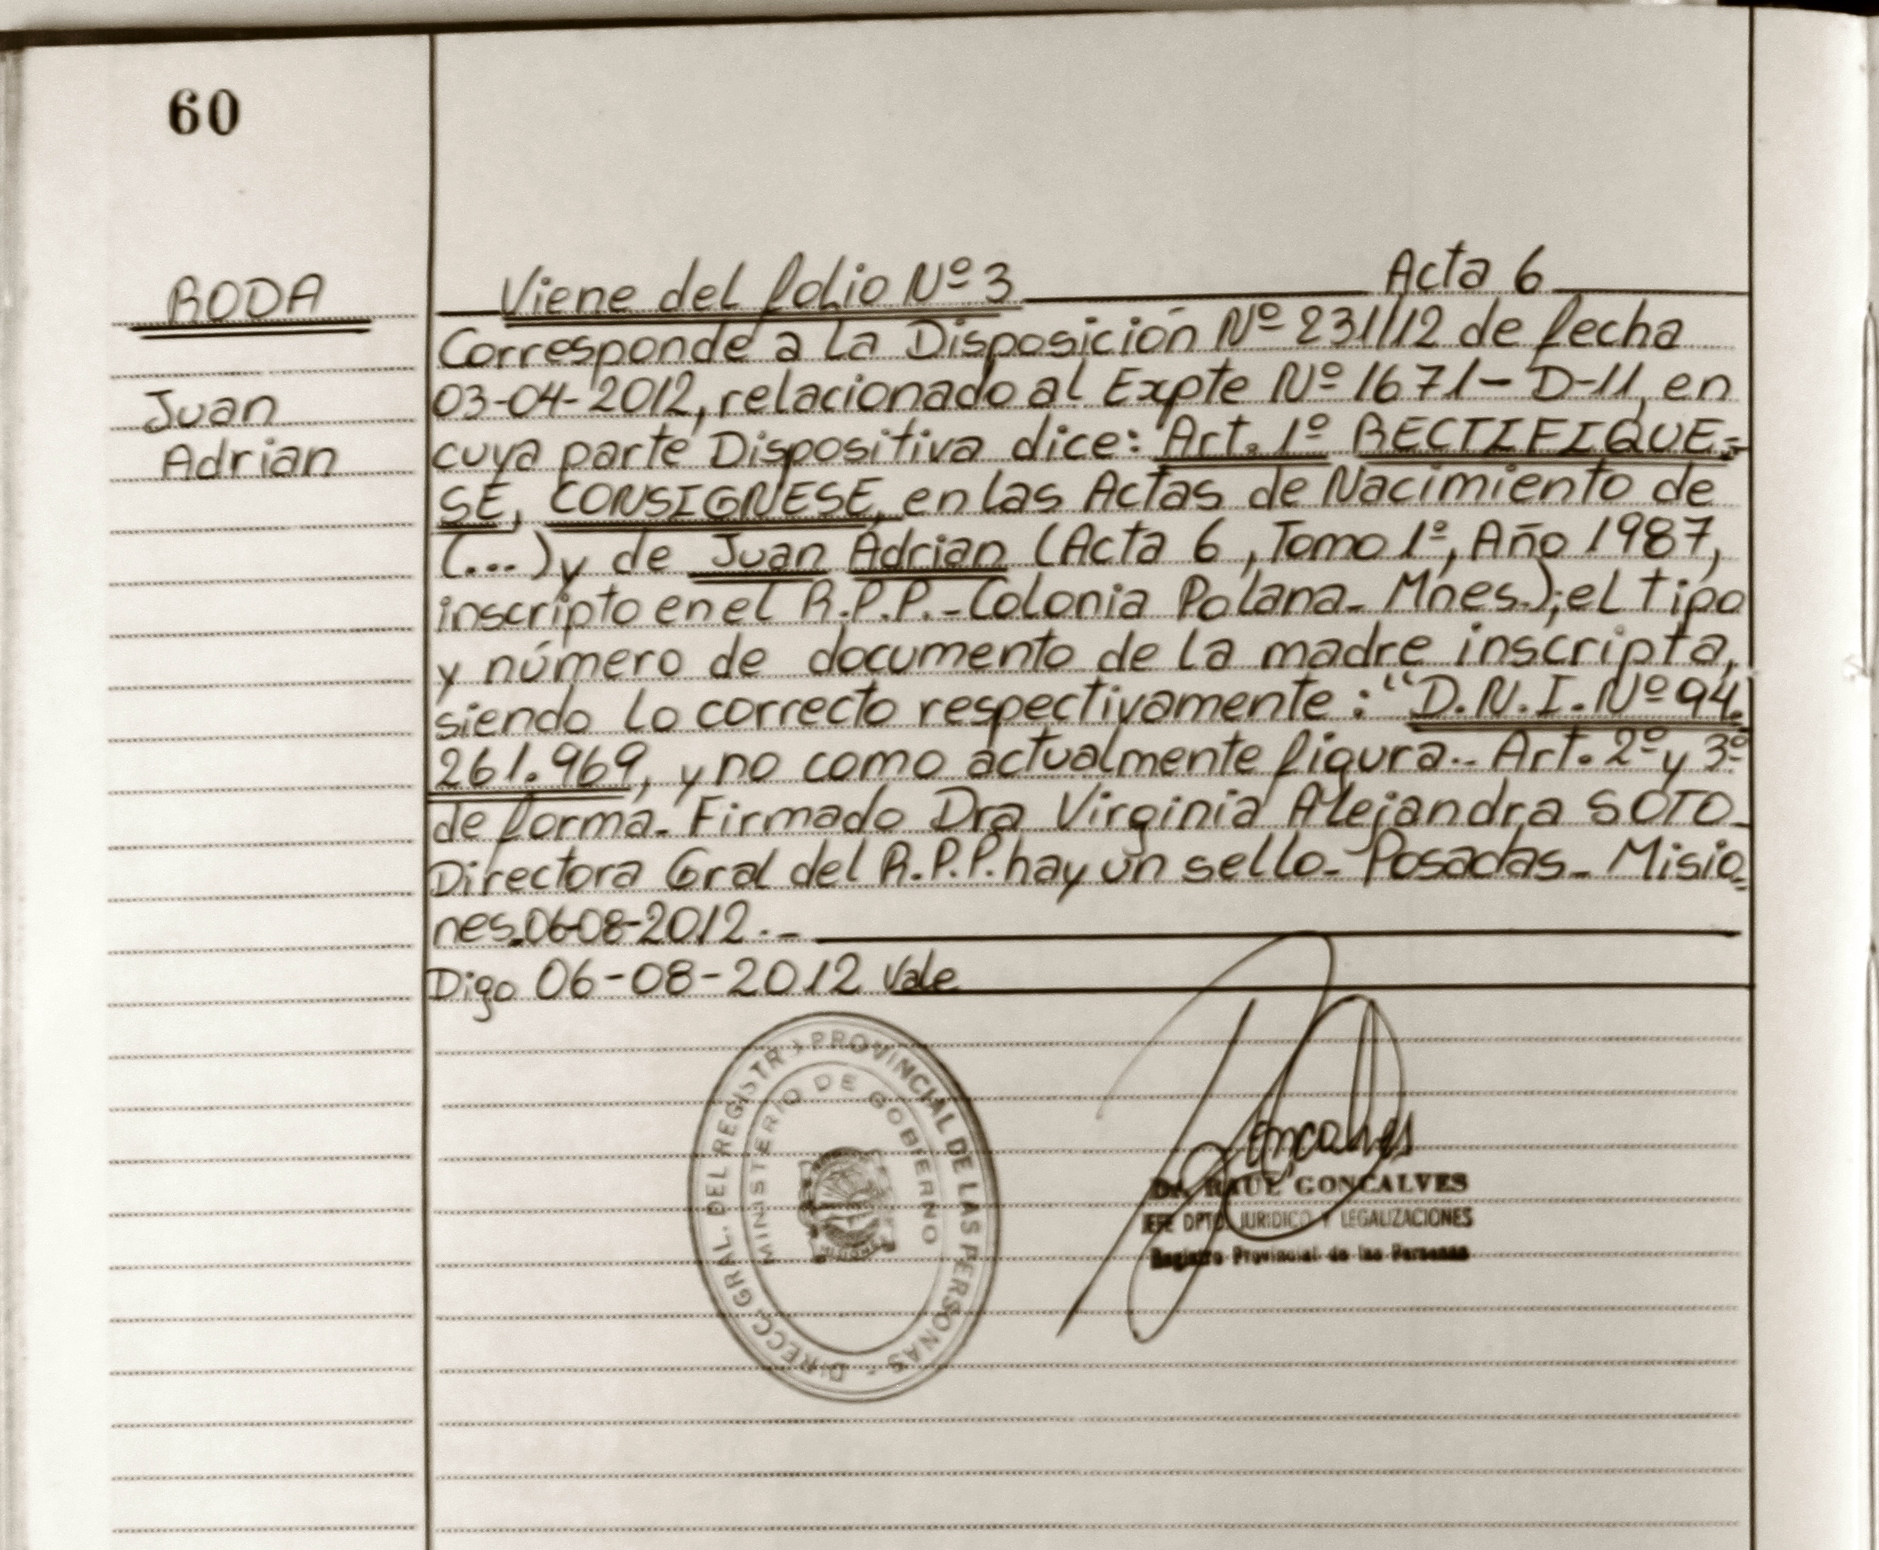 60
RODA
Juan
Adrian
Viene del folio Nº 3 Acta 6
Corresponde a la Disposición Nº 231/12 de fecha
03-04-2012, relacionado al Expte Nº 1671-D-11, en
cuya parte Dispositiva dice: Art. 1º RECTIFIQUE=
SE, CONSIGNESE, en las Actas de Nacimiento de
(...) y de Juan Adrian (Acta 6, Tomo 1º, Año 1987,
inscripto en el R.P.P.-Colonia Polana- Mnes.); el tipo
y número de documento de la madre inscripta,
siendo lo correcto respectivamente: "D.N.I. Nº 94.
261.969, y no como actualmente figura.- Art. 2º y 3º
de forma- Firmado Dra Virginia Alejandra SOTO-
Directora Gral del R.P.P. hay un sello- Posadas- Misio=
nes.06-08-2012.-
Digo 06-08-2012 Vale
DIRECC. GRAL. DEL REGISTRO PROVINCIAL DE LAS PERSONAS -
MINISTERIO DE GOBIERNO
Goncalves
Dr. RAUL GONCALVES
JEFE DPTO. JURIDICO Y LEGALIZACIONES
Registro Provincial de las Personas